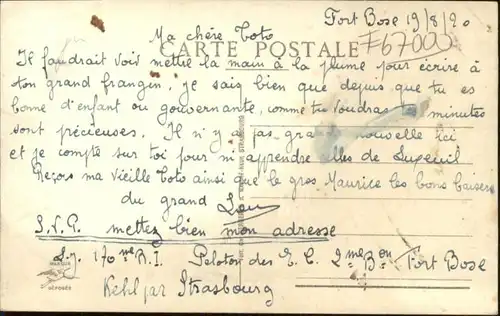 Fort Bose 19/8/20
Ma chère Toto
CARTE POSTALE
F67000
Il faudrait voir mettre la main à la plume pour écrire à
ton grand frangin, je sais bien que depuis que tu es
bonne d'enfant ou gouvernante, comme tu voudras tes minutes
sont précieuses. Il n'y a pas grande nouvelle ici
et je compte sur toi pour m'apprendre celles de Luxeuil
Reçois ma vieille Toto ainsi que le gros Maurice les bons baisers
du grand
S.V.P. mettez bien mon adresse
170me R.I. Peloton des E. C. 2me Bon Fort Bose
Kehl par Strasbourg
DÉPOSÉE